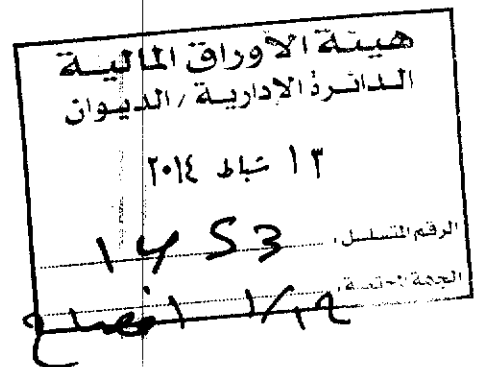 هيئة الأوراق المالية
الدائرة الإدارية / الديوان
١٣ شباط ٢٠١٤
الرقم المتسلسل:
الجهة المختصة: